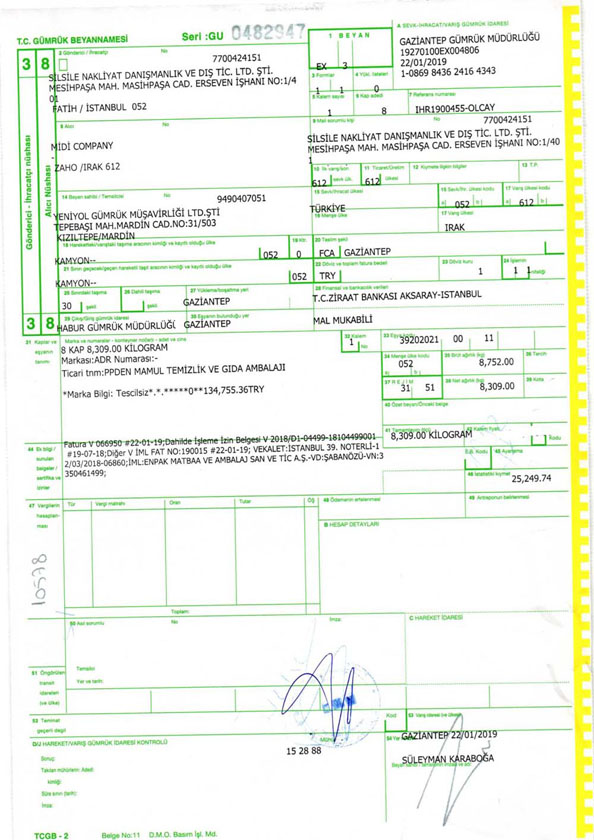 T.C. GÜMRÜK BEYANNAMESİ
Seri :GU 0482947
1 B E Y A N
EX 3
A SEVK-İHRACAT/VARIŞ GÜMRÜK İDARESİ
GAZİANTEP GÜMRÜK MÜDÜRLÜĞÜ
19270100EX004806
22/01/2019
1-0869 8436 2416 4343
3 8
2 Gönderici / İhracatçı No
7700424151
SİLSİLE NAKLİYAT DANIŞMANLIK VE DIŞ TİC. LTD. ŞTİ.
MESİHPAŞA MAH. MASİHPAŞA CAD. ERSEVEN İŞHANI NO:1/4
01
FATİH / İSTANBUL 052
3 Formlar
1 1
4 Yük. listeleri
0
5 Kalem sayısı
1
6 Kap adedi
8
7 Referans numarası
IHR1900455-OLCAY
Gönderici - İhracatçı nüshası
Alıcı Nüshası
8 Alıcı No
MİDİ COMPANY
-
ZAHO /IRAK 612
9 Mali sorumlu kişi No
7700424151
SİLSİLE NAKLİYAT DANIŞMANLIK VE DIŞ TİC. LTD. ŞTİ.
MESİHPAŞA MAH. MASİHPAŞA CAD. ERSEVEN İŞHANI NO:1/40
1
612
11 Ticaret/Üretim ülkesi
612
12 Kıymetle ilgili bilgiler
13 T.P.
14 Beyan sahibi / Temsilcisi No
9490407051
YENİYOL GÜMRÜK MÜŞAVİRLİĞİ LTD.ŞTİ
TEPEBAŞI MAH.MARDİN CAD.NO:31/503
KIZILTEPE/MARDİN
15 Sevk/İhracat ülkesi
TÜRKİYE
052
17 Varış ülkesi kodu
612
16 Menşe ülke
17 Varış ülkesi
IRAK
KAMYON--
052
19 Ktr.
0
20 Teslim şekli
FCA GAZİANTEP
KAMYON--
052
22 Döviz ve toplam fatura bedeli
TRY
23 Döviz kuru
1
24 İşlemin niteliği
1 1
25 Sınırdaki taşıma şekli
30
26 Dahili taşıma şekli
27 Yükleme/boşaltma yeri
GAZİANTEP
28 Finansal ve bankacılık verileri
T.C.ZİRAAT BANKASI AKSARAY-İSTANBUL
3 8
29 Çıkış/Giriş gümrük idaresi
HABUR GÜMRÜK MÜDÜRLÜĞÜ
30 Eşyanın bulunduğu yer
GAZİANTEP
MAL MUKABİLİ
31 Kaplar ve eşyanın tanımı
Marka ve numaralar - konteyner no/ları - adet ve cins
8 KAP 8,309.00 KİLOGRAM
Markası:ADR Numarası:-
Ticari tnm:PPDEN MAMUL TEMİZLİK VE GIDA AMBALAJI
*Marka Bilgi: Tescilsiz*.*.*****0**134,755.36TRY
32 Kalem No
1
33 Eşya kodu
39202021 00 11
34 Menşe ülke kodu
052
35 Brüt ağırlık (kg)
8,752.00
36 Tercih
37 R E J İ M
31 51
38 Net ağırlık (kg)
8,309.00
39 Kota
40 Özet beyan/Önceki belge
41 Tamamlayıcı ölçü
8,309.00 KİLOGRAM
42 Kalem fiyatı
Kodu
44 Ek bilgi / sunulan belgeler / sertifika ve izinler
Fatura V 066950 #22-01-19;Dahilde İşleme İzin Belgesi V 2018/D1-04499-18104499001
#19-07-18;Diğer V İML FAT NO:190015 #22-01-19; VEKALET:İSTANBUL 39. NOTERLİ-1
2/03/2018-06860;İML:ENPAK MATBAA VE AMBALAJ SAN VE TİC A.Ş.-VD:ŞABANÖZÜ-VN:3
350461499;
E.B. Kodu
45 Ayarlama
46 İstatistiki kıymet
25,249.74
47 Vergilerin hesaplanması
Tür Vergi matrahı Oran Tutar ÖŞ
Toplam:
48 Ödemenin ertelenmesi
49 Antreponun belirlenmesi
B HESAP DETAYLARI
10578
50 Asıl sorumlu No İmza
C HAREKET İDARESİ
Temsilci
Yer ve tarih:
51 Öngörülen transit idareleri (ve ülke)
52 Teminat geçerli değil
Kod
53 Varış idaresi (ve ülkesi)
D/J HAREKET/VARIŞ GÜMRÜK İDARESİ KONTROLÜ
Mühür:
15 28 88
Sonuç:
Takılan mühürlerin: Adedi
kimliği:
Süre sınırı (tarih):
İmza:
GAZİANTEP 22/01/2019
SÜLEYMAN KARABOĞA
TCGB - 2 Belge No:11 D.M.O. Basım İşl. Md.